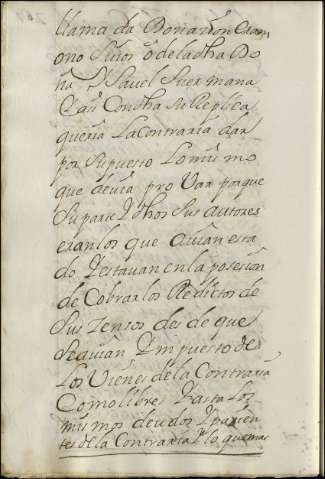 llama da Don aron Eram
ono Suior o dela dha Do
ña Ysavel Su ermana
Y asi Consta Su Replica
queria La Contraria dar
por Supuesto Lo mis mo
que devia pro Var porque
Su parte Y thos Sus Autores
eran los que avian esta
do Y estavan en la posesion
de Cobrar los Redictos de
Sus Zensos des de que
Se avian Ympuesto de
Los Vienes de la Contraria
Como libres Y asta Los
mis mos deudos Y parien
tes de la Contraria Y lo que mas